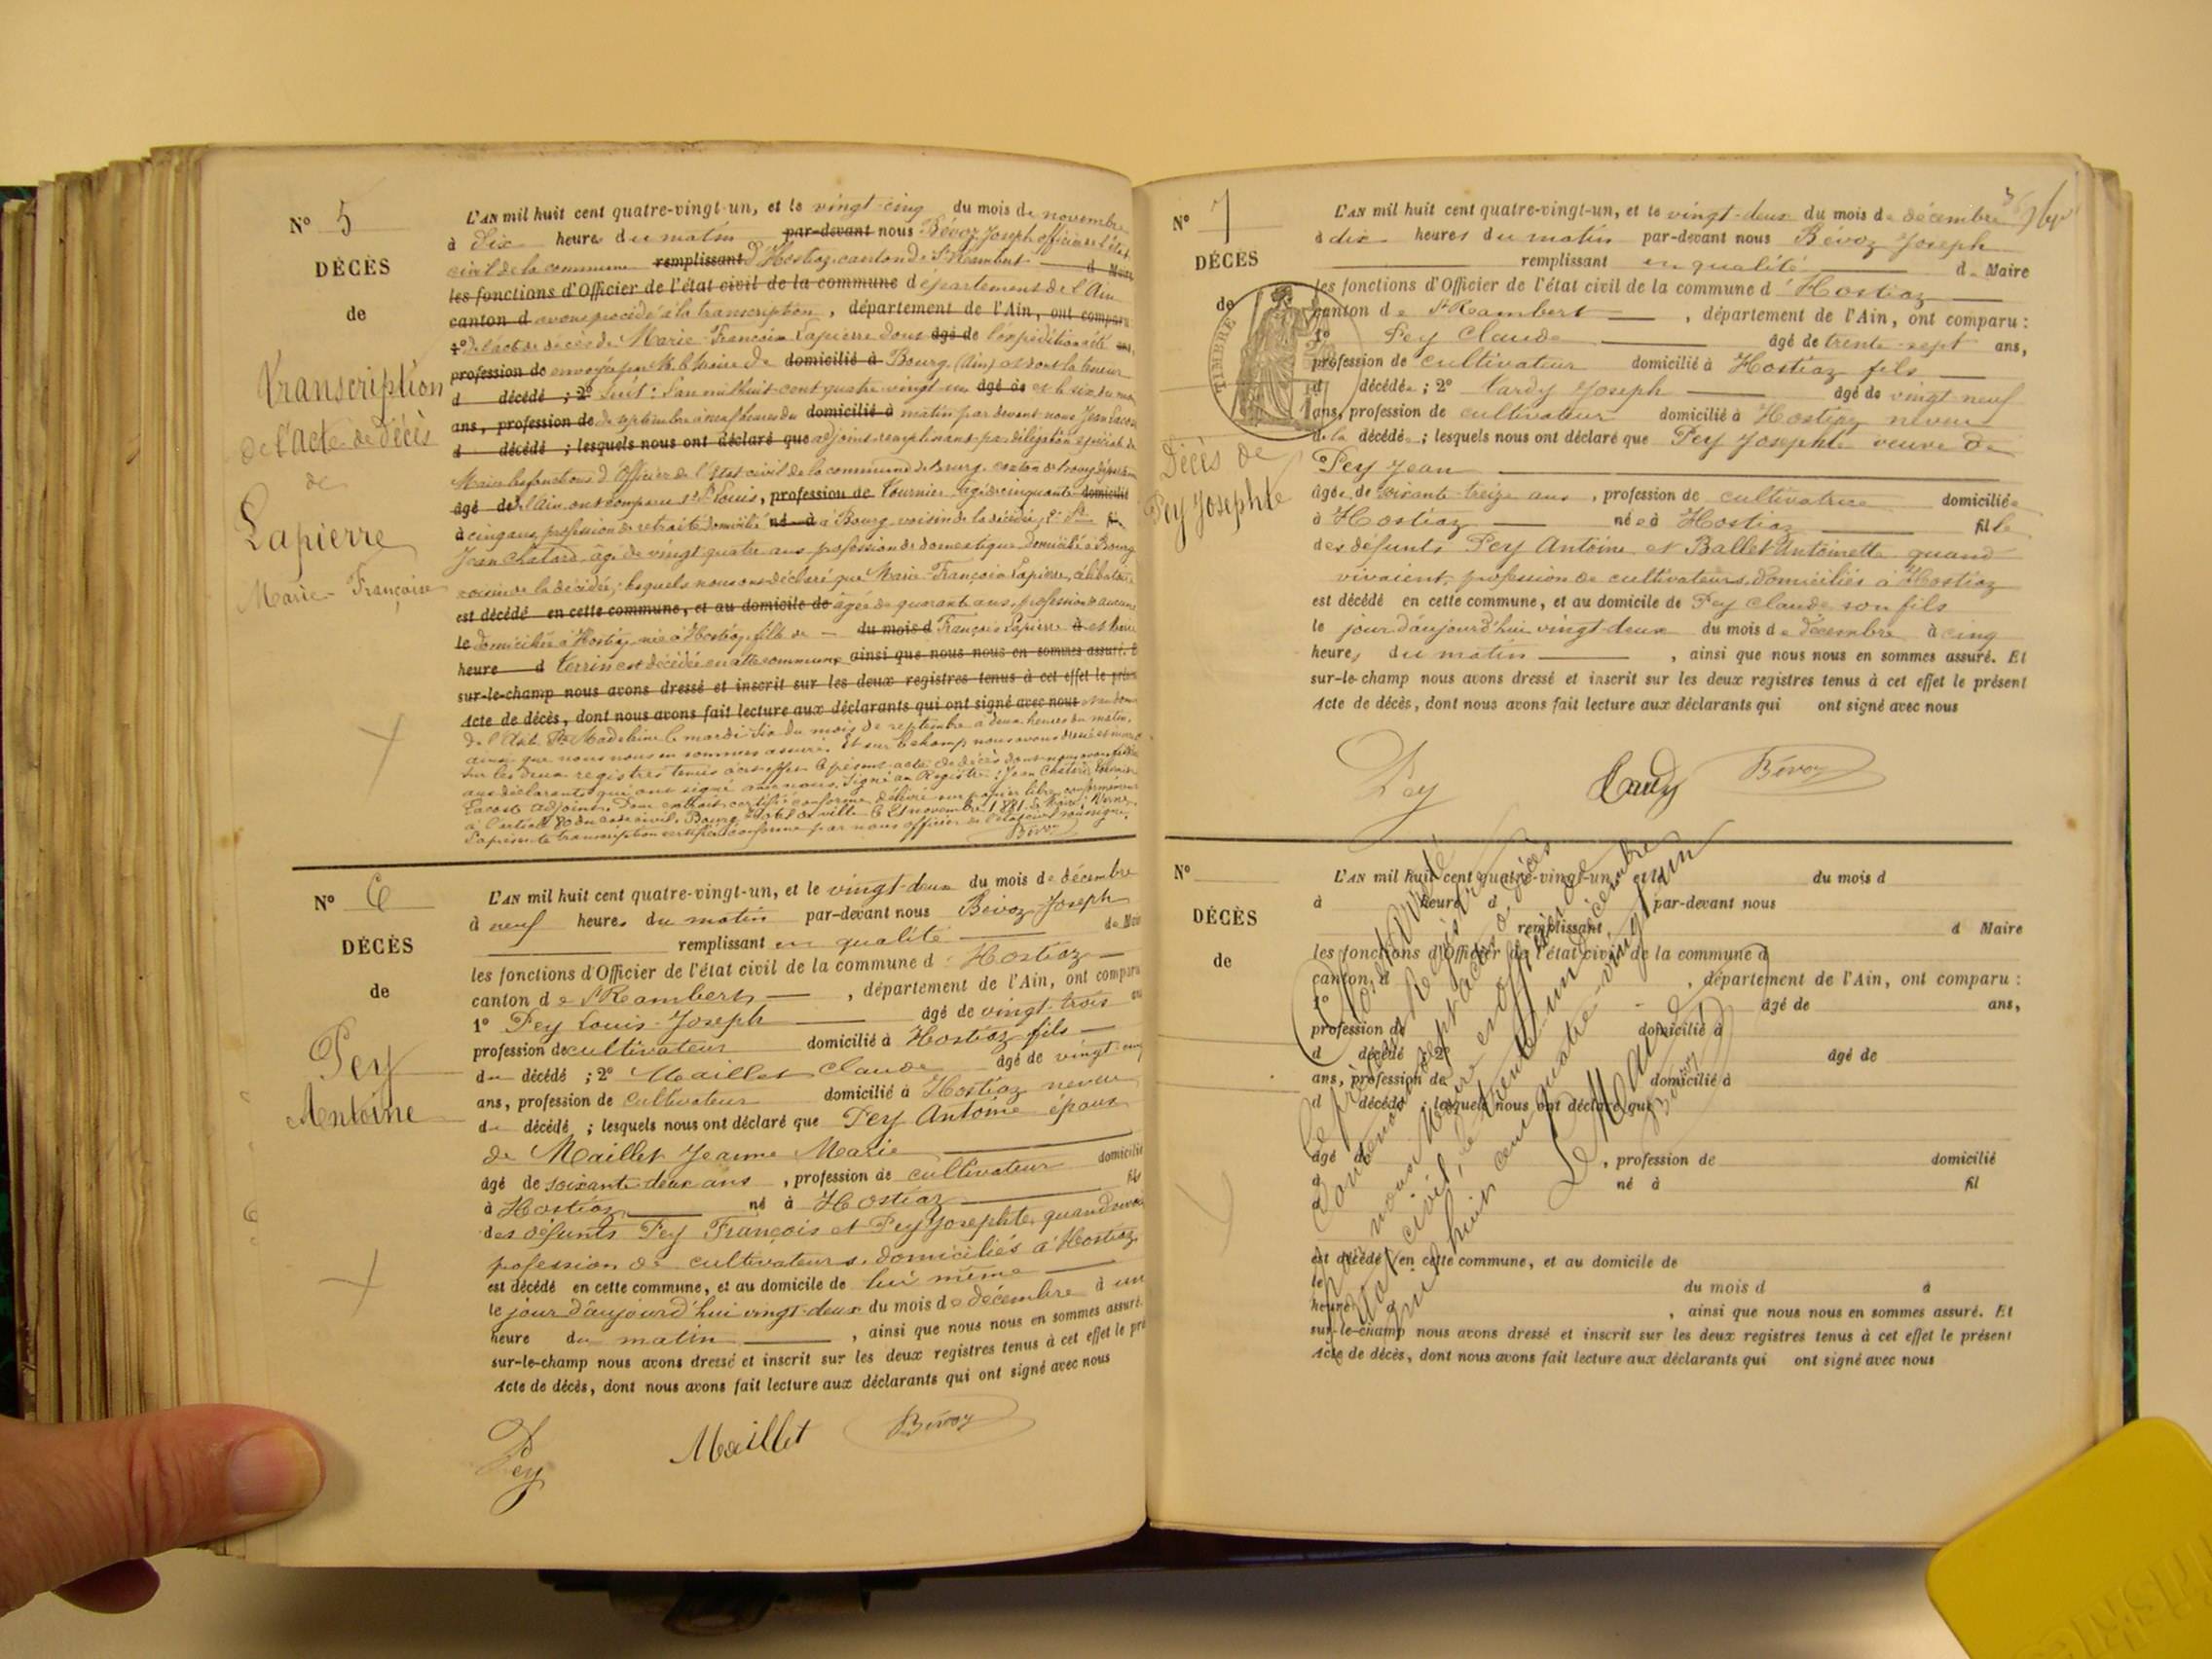 N° 5
DÉCÈS
de
Transcription
de l'acte de décès
de
Lapierre
Marie-Françoise
L'AN mil huit cent quatre-vingt-un, et le vingt cinq du mois de novembre
à dix heures du matin par-devant nous Bévoz Joseph officier de l'état
civil de la commune remplissant d'Hostiaz canton de St Rambert d Maire
les fonctions d'Officier de l'état civil de la commune département de l'Ain
canton d avons procédé à la transcription, département de l'Ain, ont comparu
1° de l'acte de décès de Marie-Françoise Lapierre dont âgé de l'expédition a été ans,
profession de envoyée par M. le Maire de domicilié à Bourg (Ain) et dont la teneur
d décédé ; 2° suit : L'an mil huit cent quatre vingt un âgé de et le six du mois
ans, profession de de septembre à neuf heures du domicilié à matin par devant nous Jean Lacoste
d décédé ; lesquels nous ont déclaré que adjoint remplissant par délégation spéciale du
Maire les fonctions d'Officier de l'Etat civil de la commune de Bourg, canton de Bourg département
âgé de de l'Ain ont comparu Louis, profession de Tournier âgé de cinquante domicilié
à cinq ans, profession de retraité domicilié né à à Bourg voisin de la décédée, 2° fil
Jean Chatard, âgé de vingt quatre ans profession de domestique domicilié à Bourg
voisin de la décédée ; lesquels nous ont déclaré que Marie-Françoise Lapierre, célibataire
est décédé en cette commune, et au domicile de âgée de quarante ans, profession aucune
le domiciliée à Hostiaz, née à Hostiaz fille de du mois d François Lapierre à et
heure d Terrin est décédée en cette commune ainsi que nous nous en sommes assuré. Et
sur-le-champ nous avons dressé et inscrit sur les deux registres tenus à cet effet le présent
Acte de décès, dont nous avons fait lecture aux déclarants qui ont signé avec nous
de l'Asile Ste Madeleine le mardi six du mois de septembre à deux heures du matin,
ainsi que nous nous en sommes assuré. Et sur le champ nous avons dressé et inscrit
sur les deux registres tenus à cet effet le présent acte de décès dont nous avons fait lecture
aux déclarants qui ont signé avec nous. Signé au Registre : Jean Chatard,
Lacoste adjoint. Pour extrait certifié conforme délivré sur papier libre conformément
à l'article 80 du code civil. Bourg, Hôtel de ville le 21 novembre 1881. Le Maire :
La présente transcription certifiée conforme par nous officier de l'état civil soussigné.
Bévoz
N° 6
DÉCÈS
de
Pey
Antoine
L'AN mil huit cent quatre-vingt-un, et le vingt-deux du mois de décembre
à neuf heures du matin par-devant nous Bévoz Joseph
remplissant en qualité de Maire
les fonctions d'Officier de l'état civil de la commune d'Hostiaz
canton de St Rambert, département de l'Ain, ont comparu
1° Pey Louis-Joseph âgé de vingt-trois ans
profession de cultivateur domicilié à Hostiaz fils
du décédé ; 2° Maillet Claude âgé de vingt-cinq
ans, profession de cultivateur domicilié à Hostiaz neveu
du décédé ; lesquels nous ont déclaré que Pey Antoine époux
de Maillet Jeanne Marie
âgé de soixante-deux ans, profession de cultivateur domicilié
à Hostiaz né à Hostiaz fils
des défunts Pey François et Pey Josephte, quand vivaient
profession de cultivateurs, domiciliés à Hostiaz
est décédé en cette commune, et au domicile de lui même
le jour d'aujourd'hui vingt-deux du mois de décembre à une
heure du matin, ainsi que nous nous en sommes assuré.
sur-le-champ nous avons dressé et inscrit sur les deux registres tenus à cet effet le pré
Acte de décès, dont nous avons fait lecture aux déclarants qui ont signé avec nous
Pey Maillet Bévoz
N° 7
DÉCÈS
de
TIMBRE
Décès de
Pey Josephte
L'AN mil huit cent quatre-vingt-un, et le vingt-deux du mois de décembre
à dix heures du matin par-devant nous Bévoz Joseph
remplissant en qualité de Maire
les fonctions d'Officier de l'état civil de la commune d'Hostiaz
canton de St Rambert, département de l'Ain, ont comparu :
1° Pey Claude âgé de trente-sept ans,
profession de cultivateur domicilié à Hostiaz fils
d décédée ; 2° Tardy Joseph âgé de vingt neuf
ans, profession de cultivateur domicilié à Hostiaz neveu
de la décédée ; lesquels nous ont déclaré que Pey Josephte veuve de
Pey Jean
âgée de soixante-treize ans, profession de cultivatrice domiciliée
à Hostiaz née à Hostiaz fille
des défunts Pey Antoine et Ballet Antoinette quand
vivaient, profession de cultivateurs, domiciliés à Hostiaz
est décédé en cette commune, et au domicile de Pey Claude son fils
le jour d'aujourd'hui vingt-deux du mois de décembre à cinq
heures du matin, ainsi que nous nous en sommes assuré. Et
sur-le-champ nous avons dressé et inscrit sur les deux registres tenus à cet effet le présent
Acte de décès, dont nous avons fait lecture aux déclarants qui ont signé avec nous
Pey Tardy Bévoz
N°
DÉCÈS
de
L'AN mil huit cent quatre-vingt-un, et le du mois d
à heure d par-devant nous
remplissant d Maire
les fonctions d'Officier de l'état civil de la commune d
canton d, département de l'Ain, ont comparu :
1° âgé de ans,
profession de domicilié à
d décédé ; 2° âgé de
ans, profession de domicilié à
d décédé ; lesquels nous ont déclaré que
âgé de, profession de domicilié
à né à fil
d
est décédé en cette commune, et au domicile de
le du mois d à
heure, ainsi que nous nous en sommes assuré. Et
sur-le-champ nous avons dressé et inscrit sur les deux registres tenus à cet effet le présent
Acte de décès, dont nous avons fait lecture aux déclarants qui ont signé avec nous
Clos et arrêté
le présent Registre
contenant sept actes de décès
par nous Maire officier de
l'état civil, le trente-un décembre
mil huit cent quatre-vingt-un
Le Maire
Bévoz